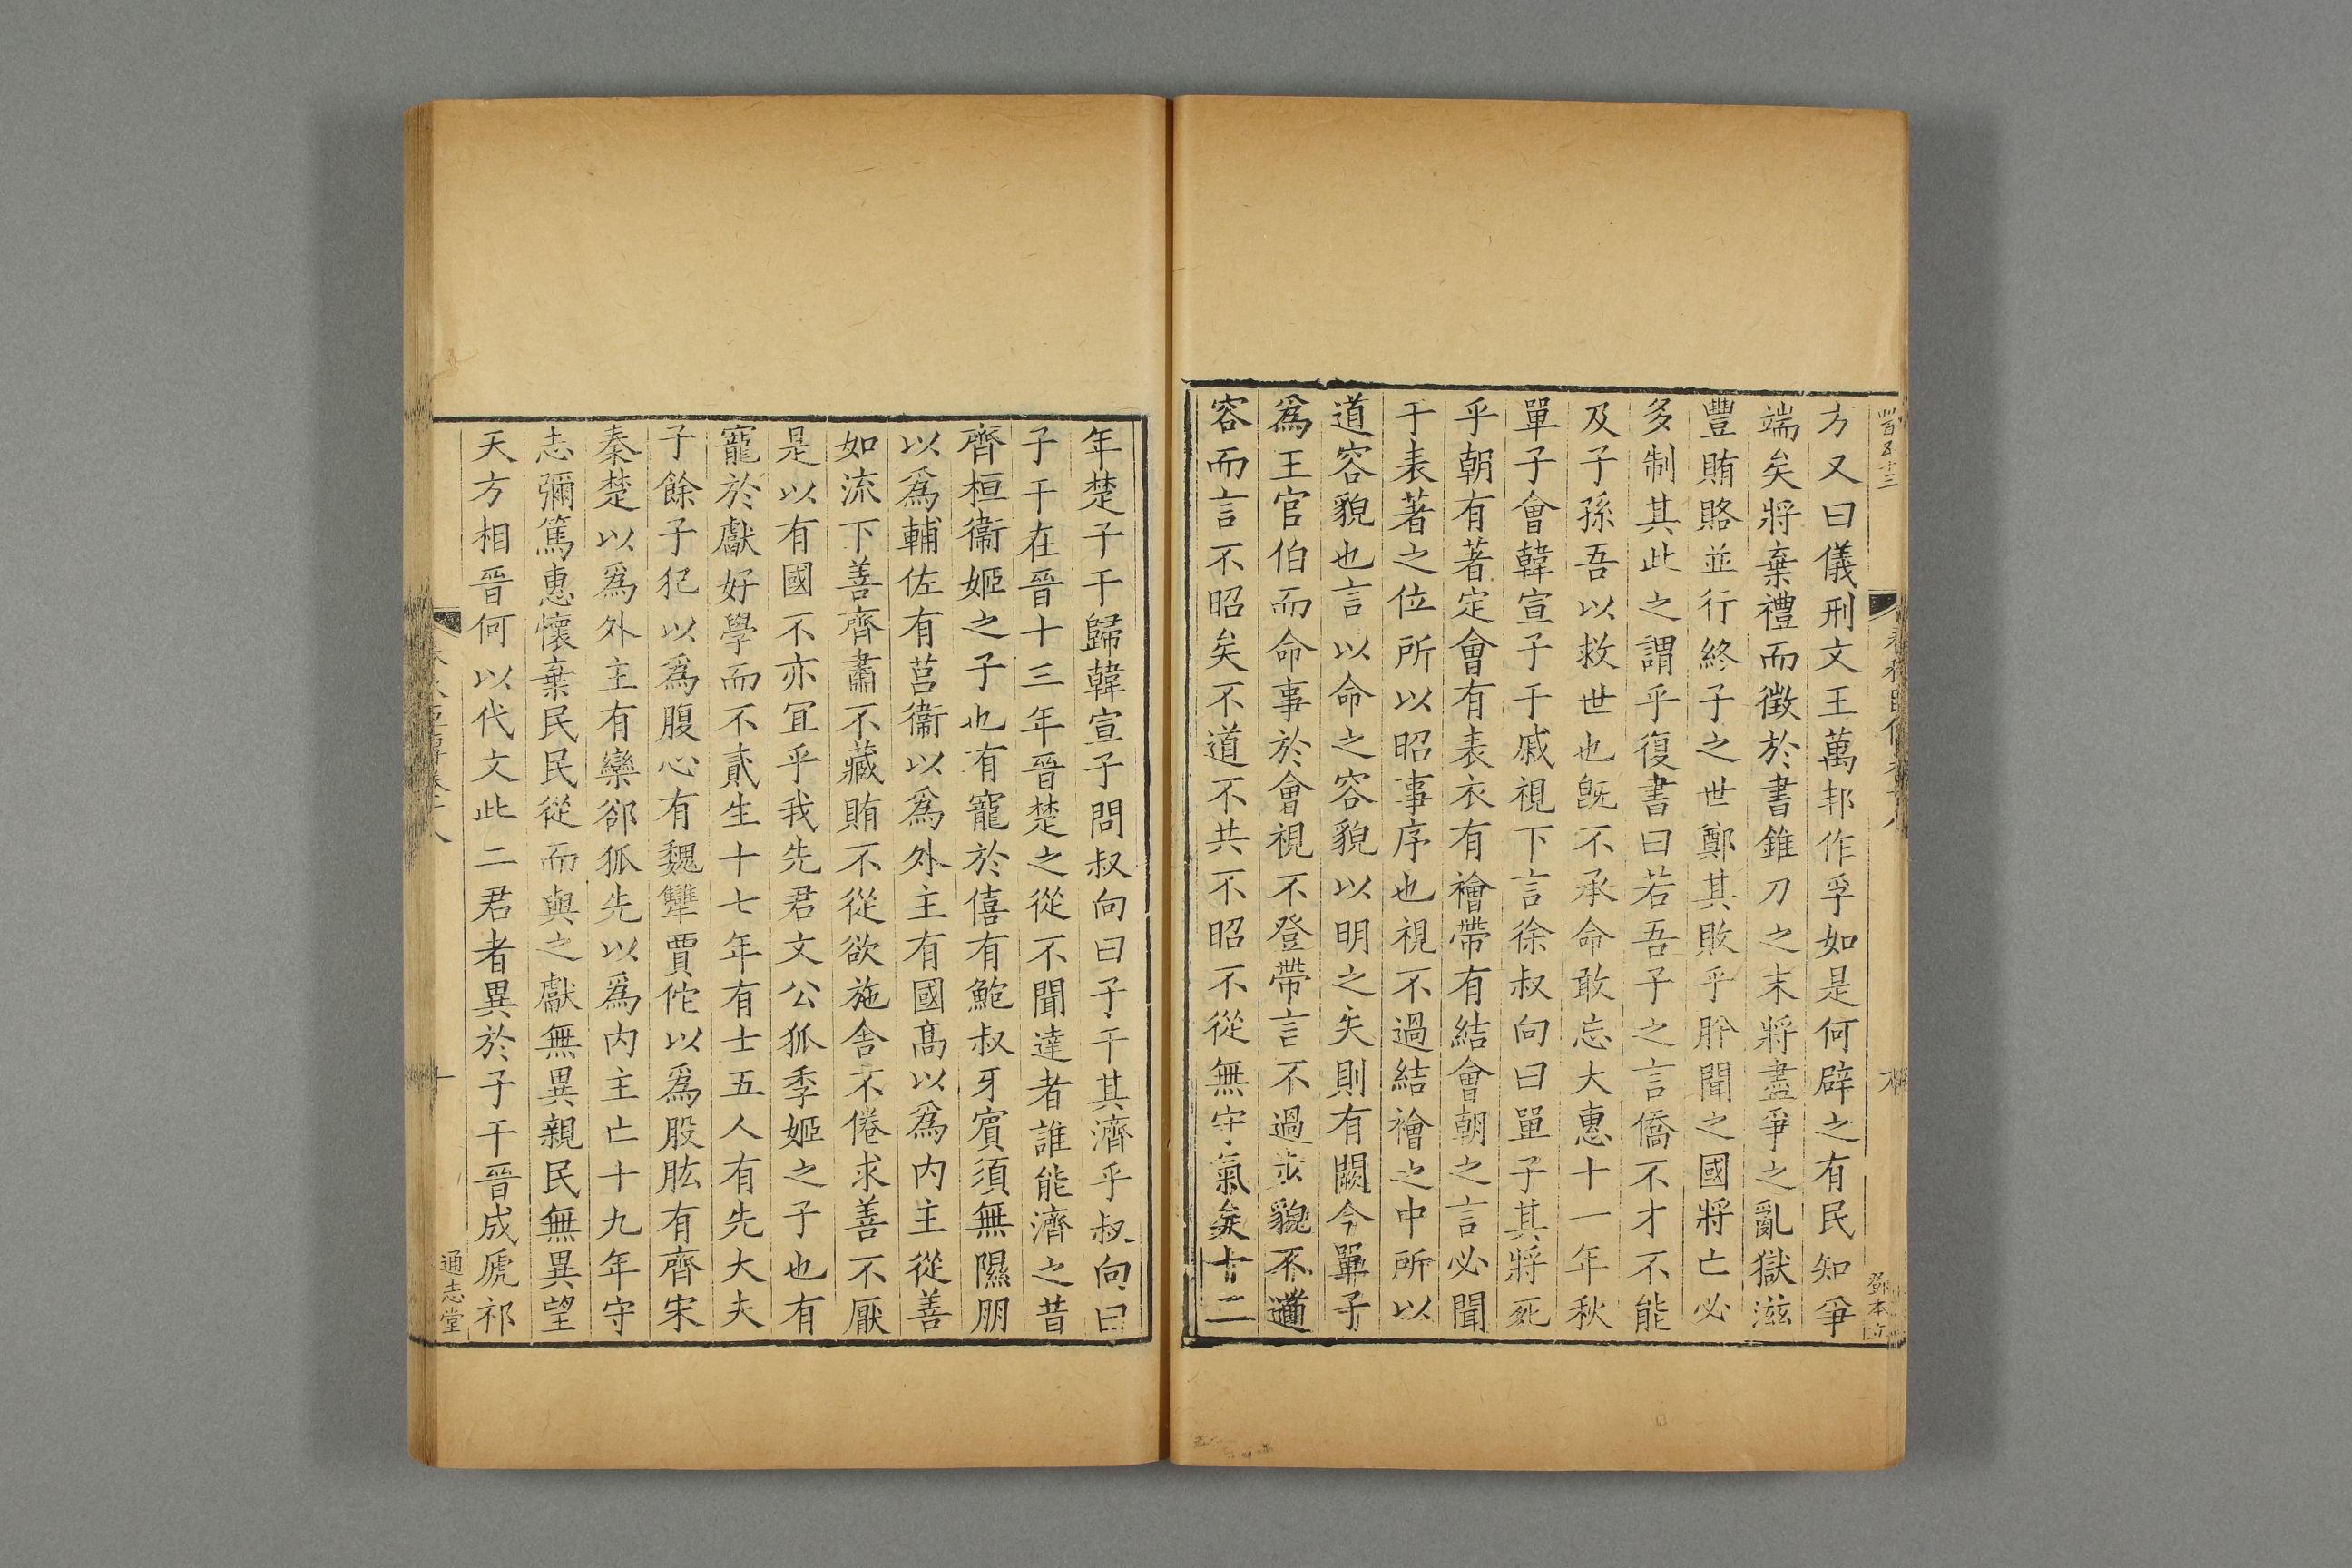 方又曰儀刑文王萬邦作孚如是何辟之有民知爭
端矣將棄禮而徵於書錐刀之末將盡爭之亂獄滋
豐賄賂並行終子之世鄭其敗乎肸聞之國將亡必
多制其此之謂乎復書曰若吾子之言僑不才不能
及子孫吾以救世也旣不承命敢忘大惠十一年秋
單子會韓宣子于戚視下言徐叔向曰單子其將死
乎朝有著定會有表衣有襘帶有結會朝之言必聞
于表著之位所以昭事序也視不過結襘之中所以
道容貌也言以命之容貌以明之失則有闕今單子
爲王官伯而命事於會視不登帶言不過步貌不道
容而言不昭矣不道不共不昭不從無守氣矣十二
年楚子干歸韓宣子問叔向曰子干其濟乎叔向曰
子干在晉十三年晉楚之從不聞達者誰能濟之昔
齊桓衞姬之子也有寵於僖有鮑叔牙賓須無隰朋
以爲輔佐有莒衞以爲外主有國髙以爲内主從善
如流下善齊肅不藏賄不從欲施舍不倦求善不厭
是以有國不亦冝乎我先君文公狐季姬之子也有
寵於獻好學而不貳生十七年有士五人有先大夫
子餘子犯以爲腹心有魏犨賈佗以爲股肱有齊宋
秦楚以爲外主有欒郤狐先以爲内主亡十九年守
志彌篤惠懷棄民民從而與之獻無異親民無異望
天方相晉何以代文此二君者異於子干晉成虒祁
通志堂